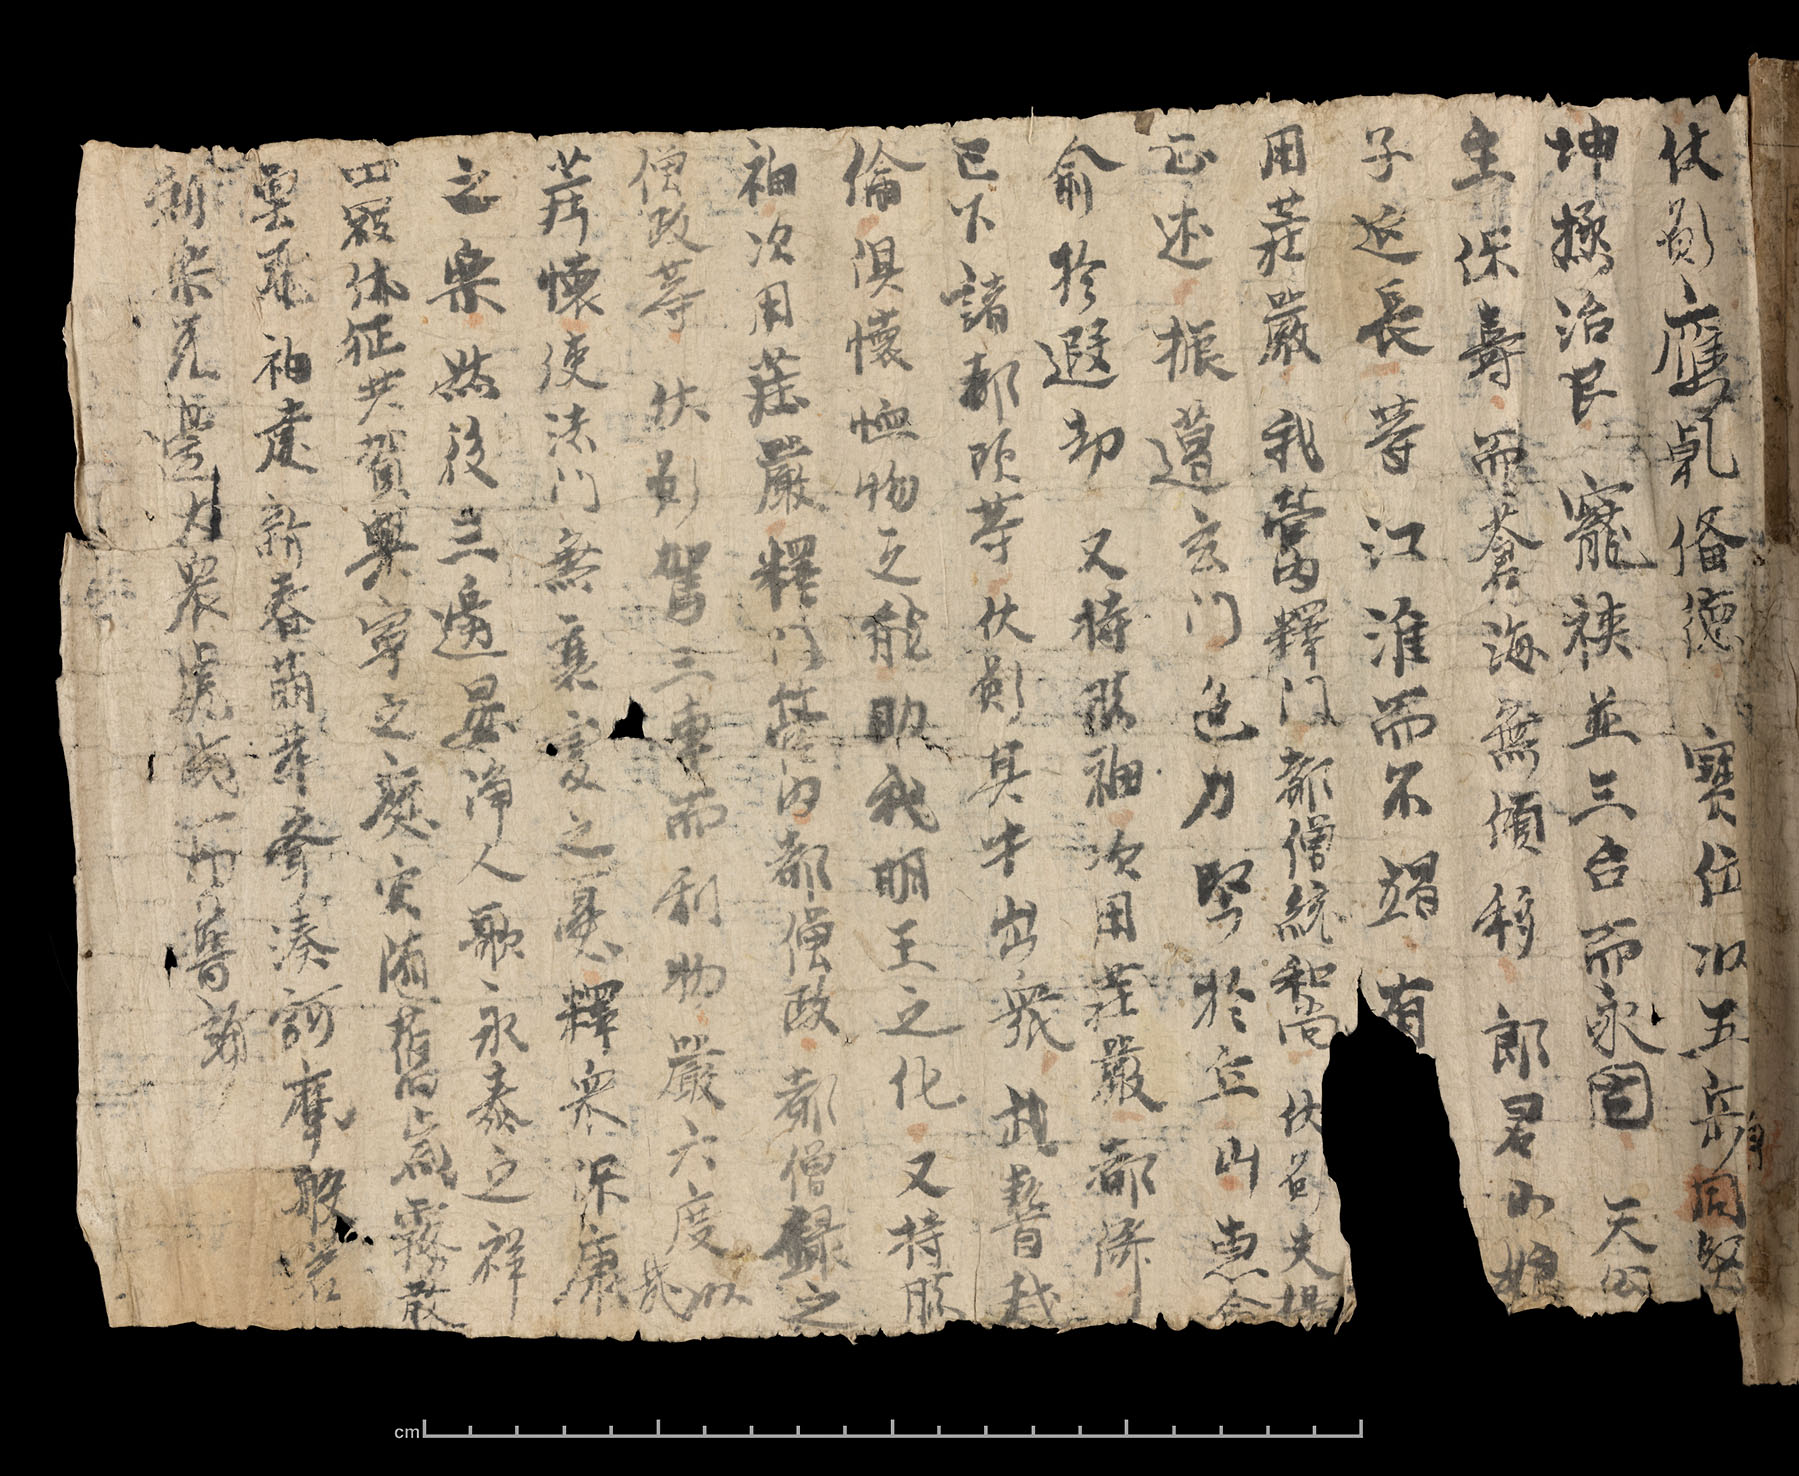 伏願應乹俻德寳位以五岳同堅
坤撫治民寵袟並三台而永固天公
主保壽而蒼海無傾移郎君小娘
子延長等江淮而不竭有
用莊嚴我營内釋門都僧統和尚伏願大揚
正述振遵玄門色力堅於丘山惠命
俞於遐劫又持勝福次用莊嚴都僧
已下諸都頭等伏願其才出衆武藝越
倫俱懷恤物之能助我明王之化又持勝
福次用莊嚴釋門管内都僧政都僧録之
僧政等伏願駕三車而利物嚴六度以
莊懷使法門無衰變之憂釋衆深康哉
之樂然後三邊晏淨人歌永泰之祥
四寇休征共賀興寧之慶灾隨舊歳霧散
雲飛福建新春萌芽齊湊訶摩般若
利樂无邊大衆虔誠一切普誦